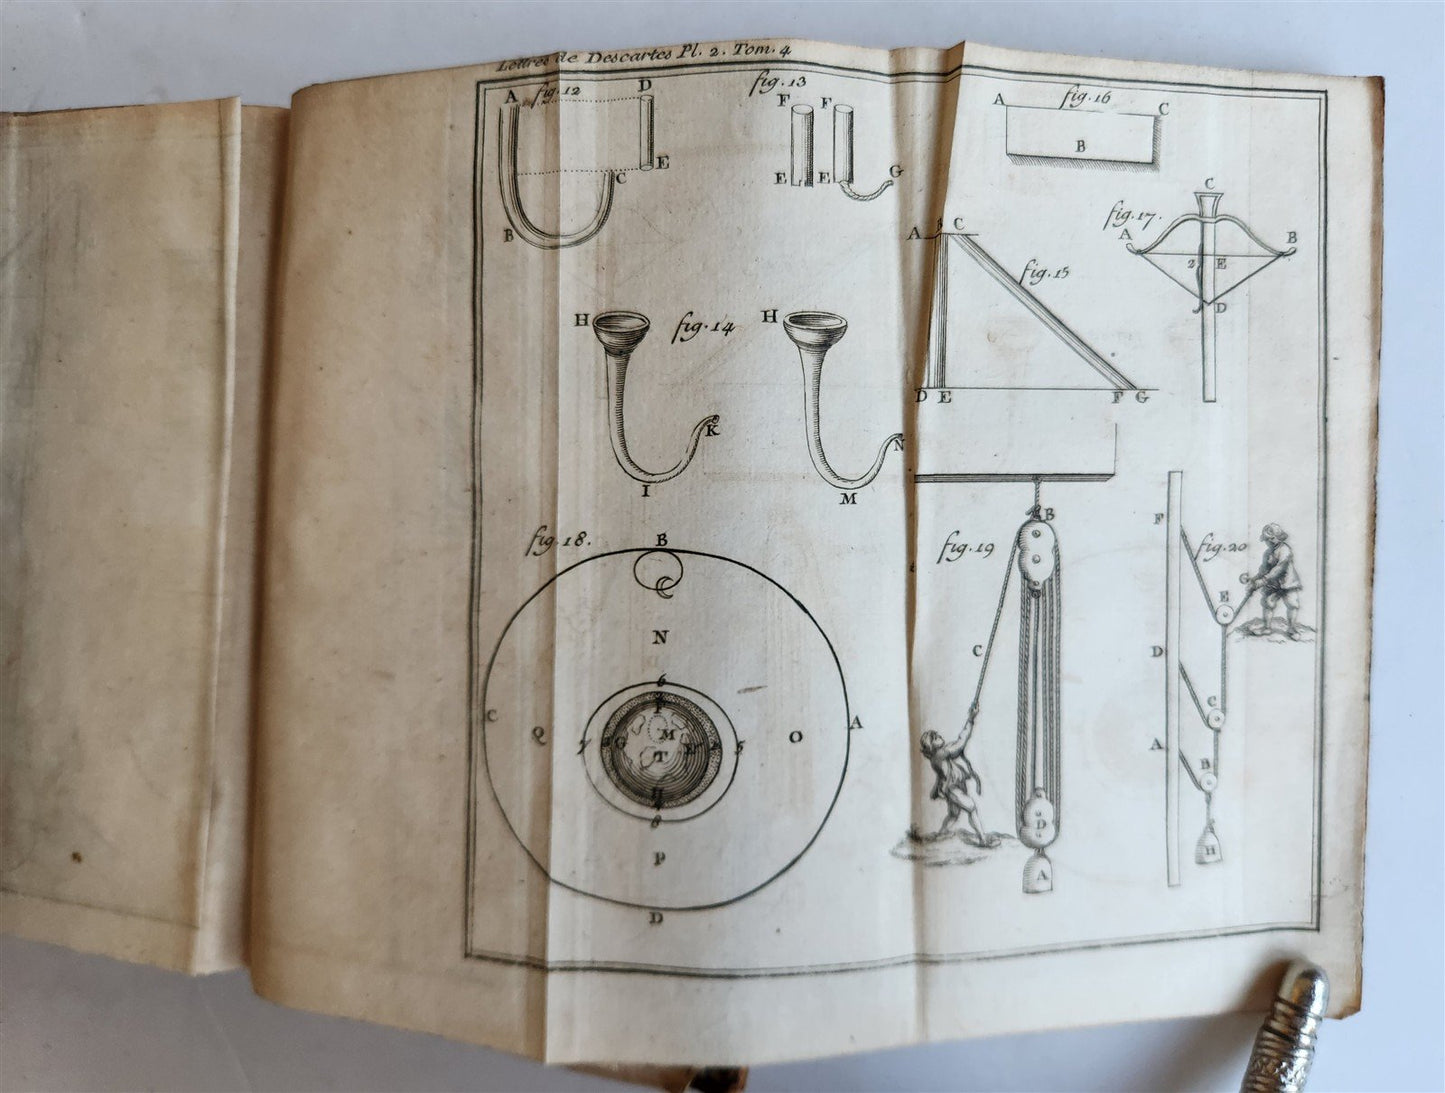 Lettres de Descartes Pl. 2. Tom. 4
fig. 12
A D
E
C
B
fig. 13
F F
E E G
fig. 16
A C
B
fig. 17.
C
A B
2 E
D
fig. 15
A C
D E F G
fig. 14
H H
K N
I M
fig. 18.
B
N
6
C Q 7 G M 5 O A
T
H
8
P
D
fig. 19
B
C
D
A
fig. 20
F
G
E
D
C
A
B
H